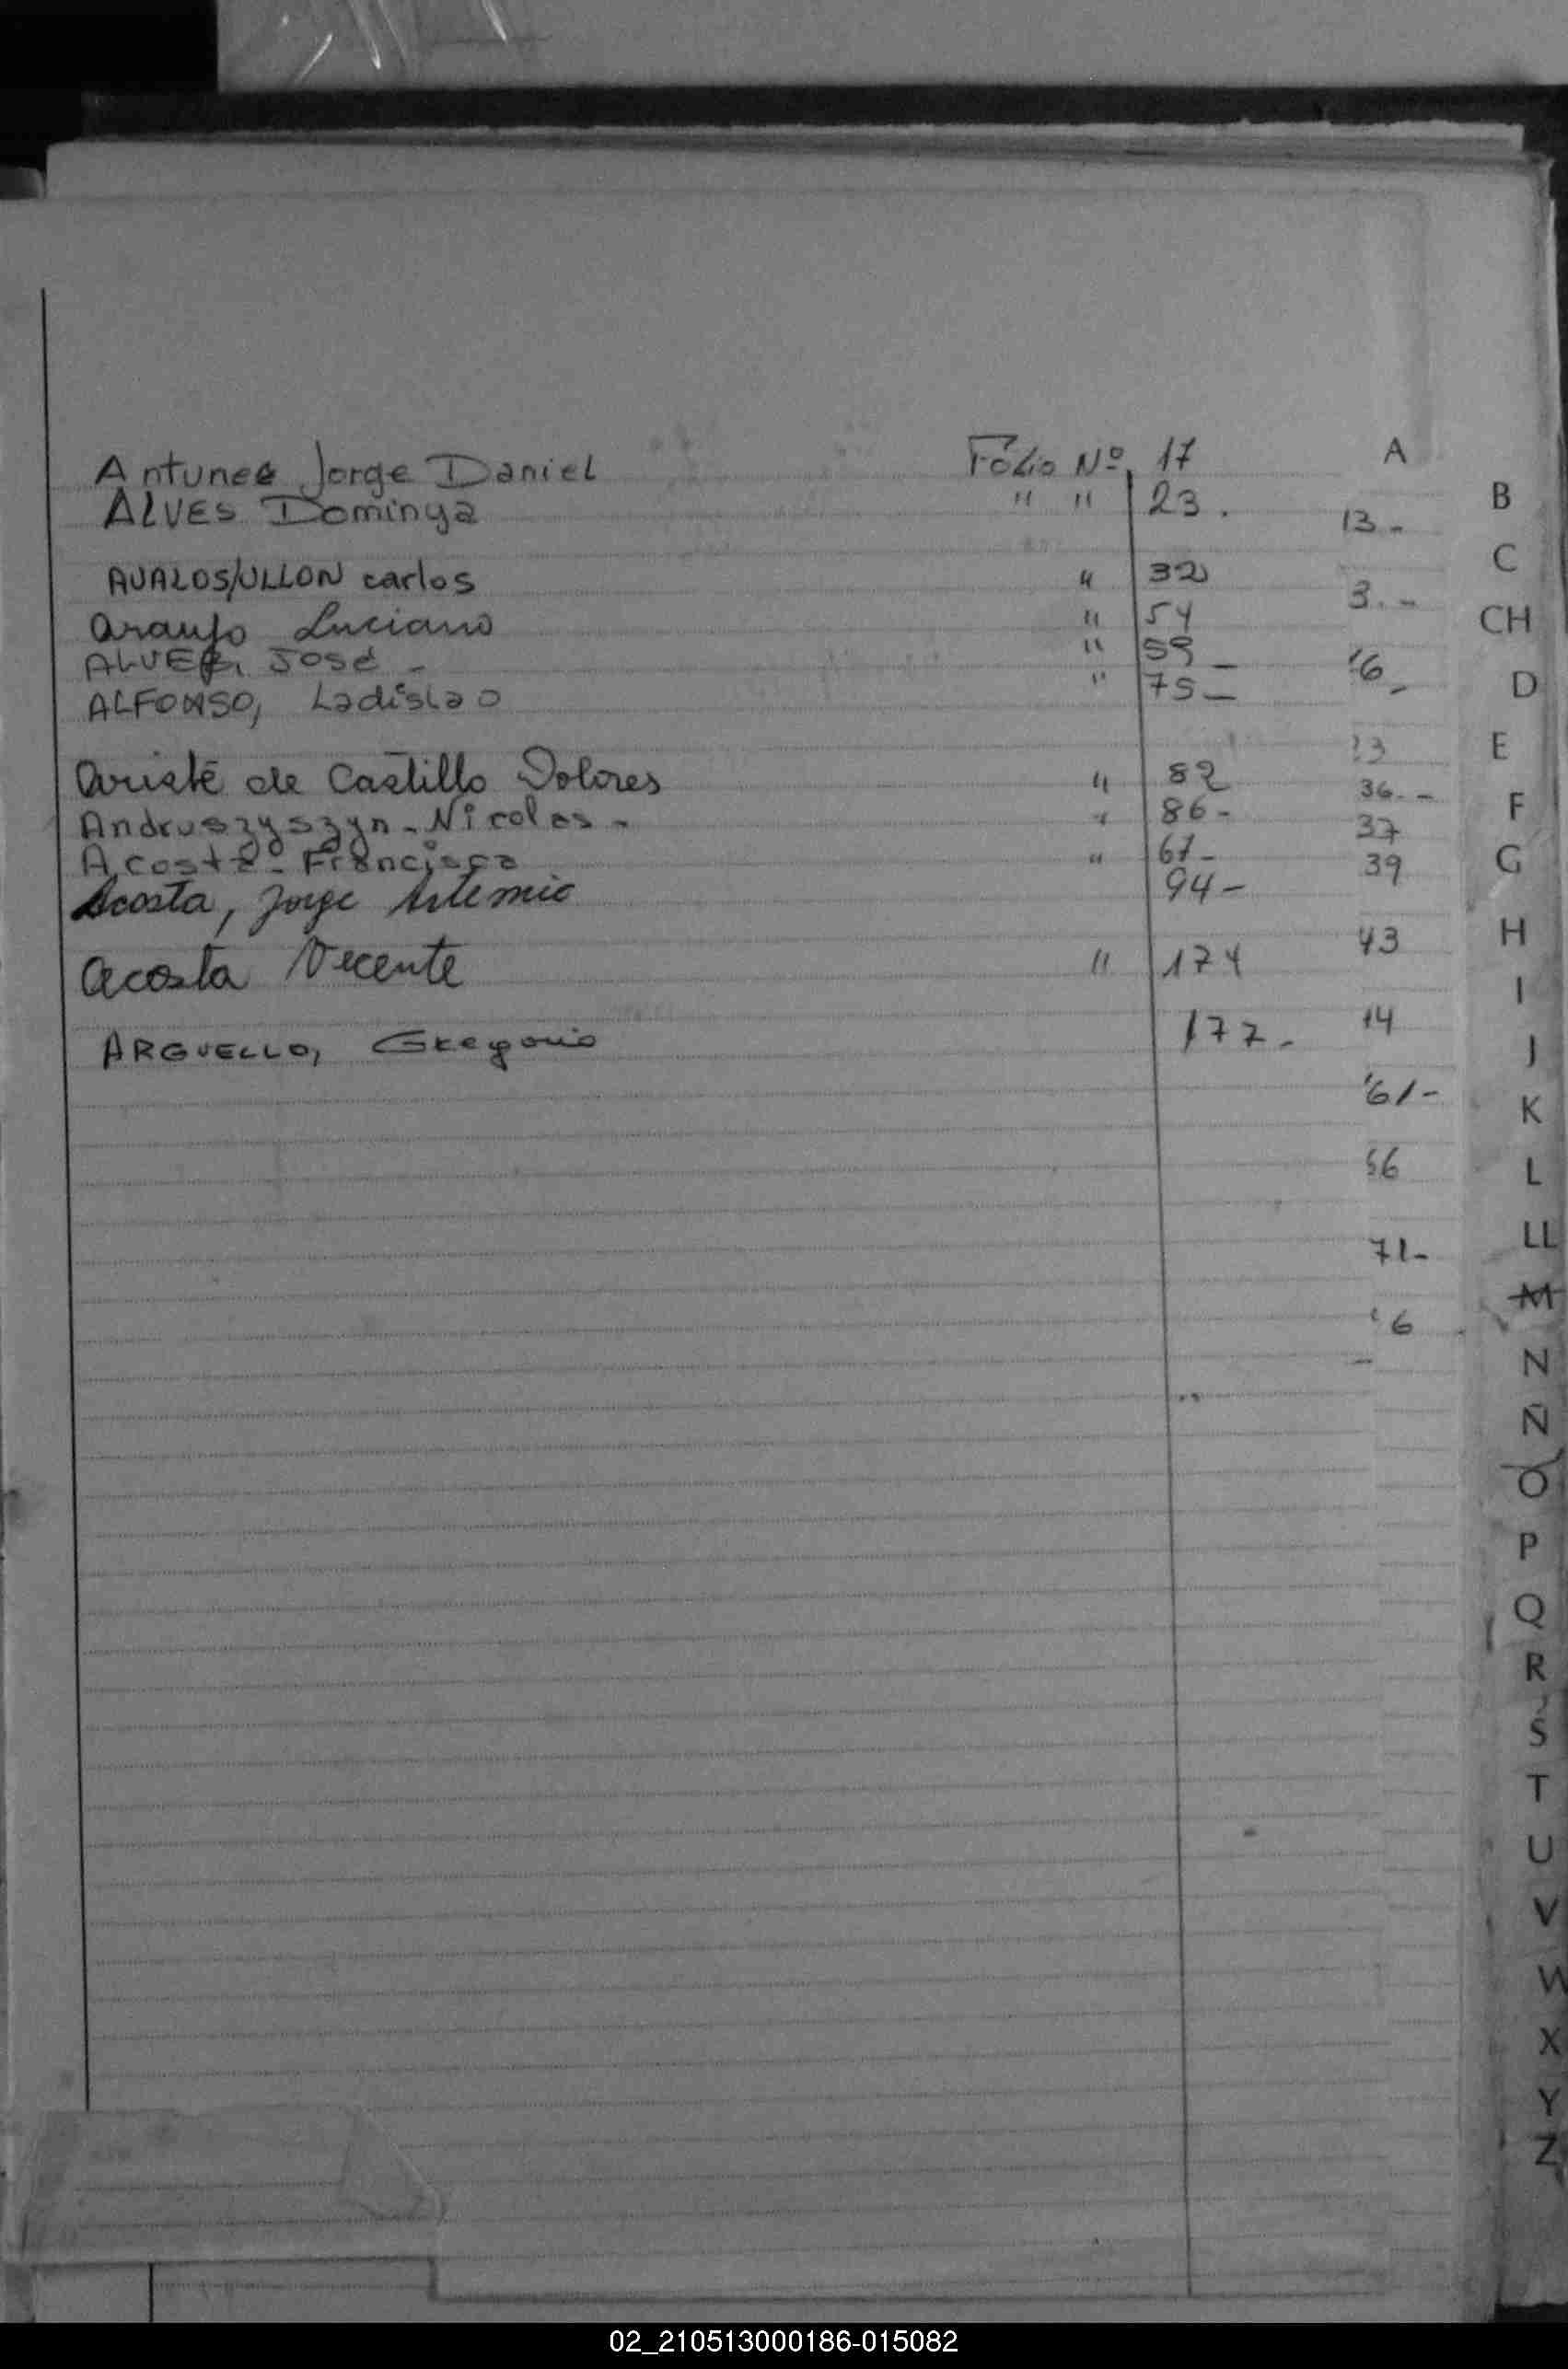 Antunes Jorge Daniel Folio Nº 17 A
ALVES Dominga " " 23. 13.- B
C
AVALOS/ULLON carlos " 32
3.- CH
Araujo Luciano " 54
ALVEZ, José - " 59 -
ALFONSO, Ladislao " 75 - D
23 E
Ariste de Castillo Dolores " 82 36.-
Andruszyszyn - Nicolas - " 86 - 37 F
Acosta - Francisca " 67 - 39 G
Acosta, Jorge Artemio 94 -
43 H
Acosta Vicente " 174
I
ARGUELLO, Gregorio 177.- 14 J
61- K
56 L
71- LL
6 M
N
Ñ
O
P
Q
R
S
T
U
V
W
X
Y
Z
02_210513000186-015082